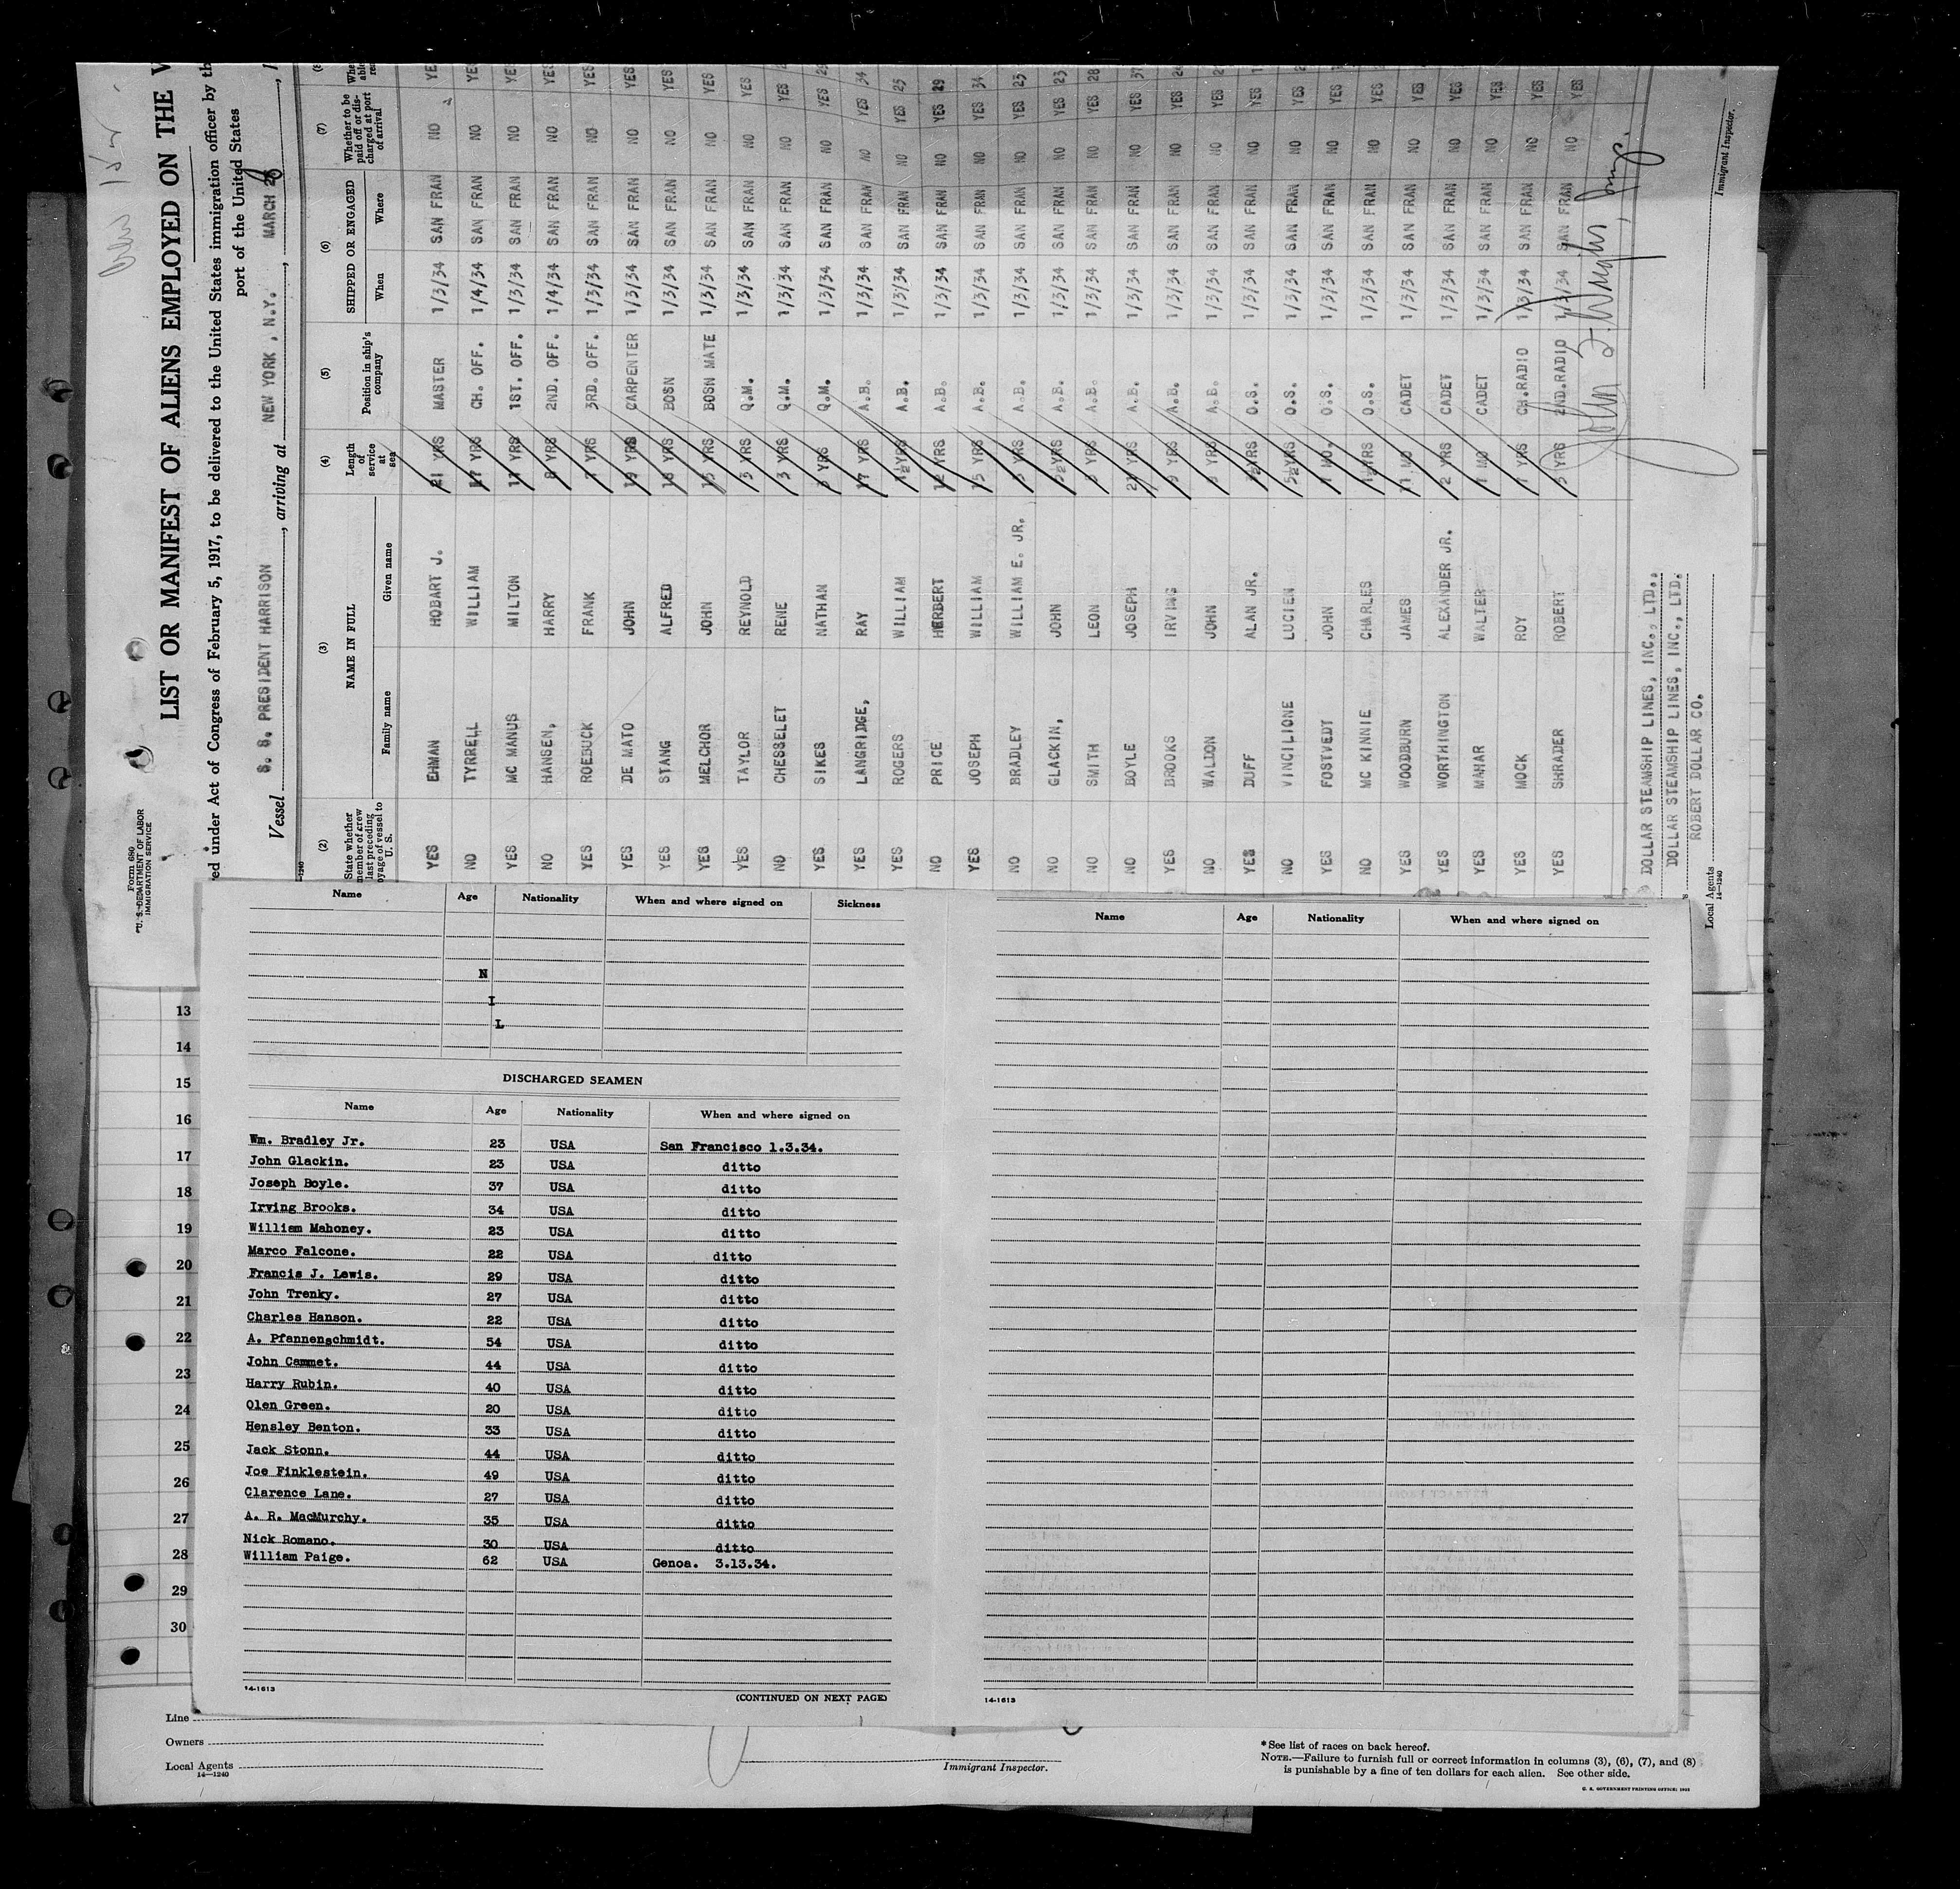 LIST OR MANIFEST OF ALIENS EMPLOYED ON THE
red under Act of Congress of February 5, 1917, to be delivered to the United States immigration officer by th
port of the United States
Form 680
U. S. DEPARTMENT OF LABOR
IMMIGRATION SERVICE
Vessel S. S. PRESIDENT HARRISON, arriving at NEW YORK, N.Y. MARCH
14-1240
(2) (3) (4) (5) (6) (7)
State whether member of crew last preceding voyage of vessel to U. S. NAME IN FULL Length of service at sea Position in ship's company SHIPPED OR ENGAGED Whether to be paid off or discharged at port of arrival
Family name Given name When Where
YES EHMAN HOBART J. 21 YRS MASTER 1/3/34 SAN FRAN NO YE
NO TYRRELL WILLIAM 17 YRS CH. OFF. 1/4/34 SAN FRAN NO YES
YES MC MANUS MILTON YRS 1ST. OFF. 1/3/34 SAN FRAN NO YES
NO HANSEN, HARRY YRS 2ND. OFF. 1/4/34 SAN FRAN NO YES
YES ROEBUCK FRANK YRS 3RD. OFF. 1/3/34 SAN FRAN NO YES
YES DE MATO JOHN YRS CARPENTER 1/3/34 SAN FRAN NO YES
YES STANG ALFRED YRS BOSN 1/3/34 SAN FRAN NO YES
YES MELCHOR JOHN YRS BOSN MATE 1/3/34 SAN FRAN NO YES
YES TAYLOR REYNOLD YRS Q.M. 1/3/34 SAN FRAN NO YES
NO CHESSELET RENE 3 YRS Q.M. 1/3/34 SAN FRAN NO YES
YES SIKES NATHAN YRS Q.M. 1/3/34 SAN FRAN NO YES
YES LANGRIDGE, RAY YRS A.B. 1/3/34 SAN FRAN NO YES 34
YES ROGERS WILLIAM YRS A.B. 1/3/34 SAN FRAN NO YES 25
NO PRICE HERBERT YRS A.B. 1/3/34 SAN FRAN NO YES 29
YES JOSEPH WILLIAM YRS A.B. 1/3/34 SAN FRAN NO YES 34
NO BRADLEY WILLIAM E. JR. YRS A.B. 1/3/34 SAN FRAN NO YES 23
NO GLACKIN, JOHN YRS A.B. 1/3/34 SAN FRAN NO YES 23
NO SMITH LEON YRS A.B. 1/3/34 SAN FRAN NO YES 28
NO BOYLE JOSEPH YRS A.B. 1/3/34 SAN FRAN NO YES 37
YES BROOKS IRVING YRS A.B. 1/3/34 SAN FRAN NO YES
NO WALDON JOHN YRS A.B. 1/3/34 SAN FRAN NO YES
YES DUFF ALAN JR. YRS O.S. 1/3/34 SAN FRAN NO YES
NO VINCILIONE LUCIEN 5½ YRS O.S. 1/3/34 SAN FRAN NO YES
YES FOSTVEDT JOHN MO. O.S. 1/3/34 SAN FRAN NO YES
NO MC KINNIE CHARLES YRS O.S. 1/3/34 SAN FRAN NO YES
YES WOODBURN JAMES 11 MO CADET 1/3/34 SAN FRAN NO YES
YES WORTHINGTON ALEXANDER JR. 2 YRS CADET 1/3/34 SAN FRAN NO YES
YES MAHAR WALTER MO CADET 1/3/34 SAN FRAN NO YES
YES MOCK ROY YRS CH.RADIO 1/3/34 SAN FRAN NO YES
YES SHRADER ROBERT YRS 2ND.RADIO 1/3/34 SAN FRAN NO YES
DOLLAR STEAMSHIP LINES, INC., LTD.,
DOLLAR STEAMSHIP LINES, INC., LTD.
ROBERT DOLLAR CO.
Local Agents
14-1240
Immigrant Inspector.
Name Age Nationality When and where signed on Sickness
N
I
L
DISCHARGED SEAMEN
Name Age Nationality When and where signed on
Wm. Bradley Jr. 23 USA San Francisco 1.3.34.
John Glackin. 23 USA ditto
Joseph Boyle. 37 USA ditto
Irving Brooks. 34 USA ditto
William Mahoney. 23 USA ditto
Marco Falcone. 22 USA ditto
Francis J. Lewis. 29 USA ditto
John Trenky. 27 USA ditto
Charles Hanson. 22 USA ditto
A. Pfannenschmidt. 54 USA ditto
John Cammet. 44 USA ditto
Harry Rubin. 40 USA ditto
Olen Green. 20 USA ditto
Hensley Benton. 33 USA ditto
Jack Stonn. 44 USA ditto
Joe Finklestein. 49 USA ditto
Clarence Lane. 27 USA ditto
A. R. MacMurchy. 35 USA ditto
Nick Romano. 30 USA ditto
William Paige. 62 USA Genoa. 3.13.34.
14-1613
(CONTINUED ON NEXT PAGE)
Name Age Nationality When and where signed on
14-1613
13
14
15
16
17
18
19
20
21
22
23
24
25
26
27
28
29
30
Line
Owners
Local Agents
14-1240
Immigrant Inspector.
*See list of races on back hereof.
NOTE.—Failure to furnish full or correct information in columns (3), (6), (7), and (8)
is punishable by a fine of ten dollars for each alien. See other side.